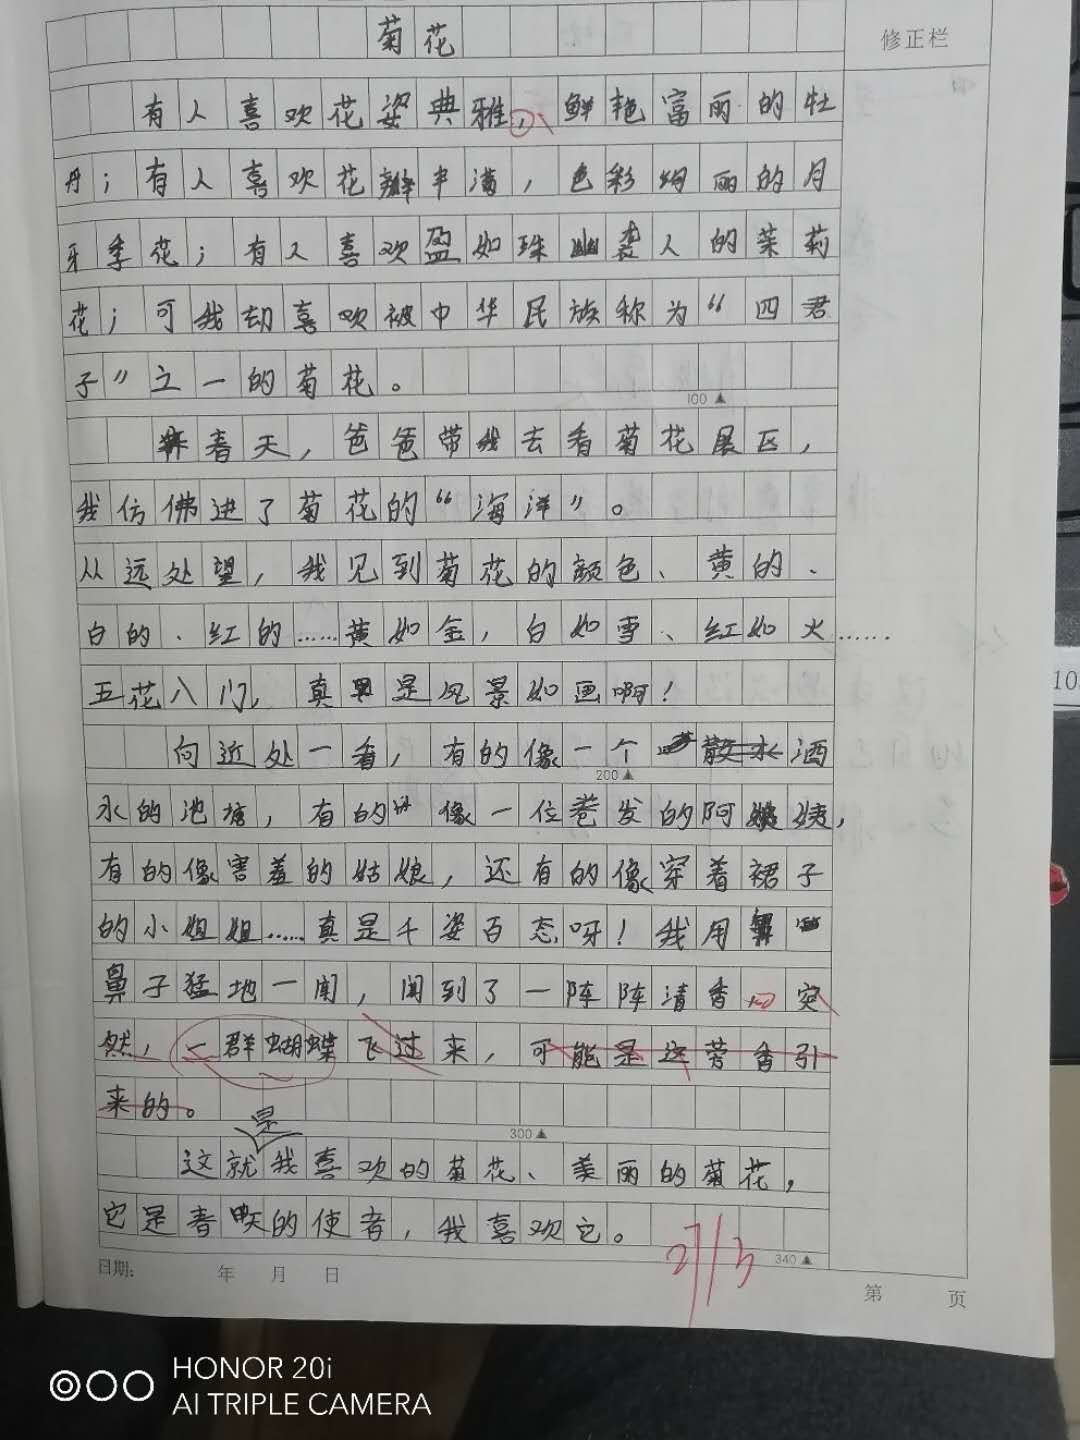 菊花
修正栏
有人喜欢花姿典雅，鲜艳富丽的牡
丹；有人喜欢花瓣丰满，色彩绚丽的月
牙季花；有人喜欢盈如珠幽袭人的茉莉
花；可我却喜欢被中华民族称为“四君
子”之一的菊花。
100
春天，爸爸带我去看菊花展区，
我仿佛进了菊花的“海洋”。
从远处望，我见到菊花的颜色、黄的、
白的、红的……黄如金，白如雪、红如火……
五花八门，真是风景如画啊！
向近处一看，有的像一个洒
200
水的池塘，有的像一位卷发的阿姨，
有的像害羞的姑娘，还有的像穿着裙子
的小姐姐……真是千姿百态呀！我用
鼻子猛地一闻，闻到了一阵阵清香 突
然，一群蝴蝶飞过来，可能是这芳香引
来的。
300
这就是我喜欢的菊花、美丽的菊花，
它是春天的使者，我喜欢它。
340
日期： 年 月 日
第 页
HONOR 20i
AI TRIPLE CAMERA